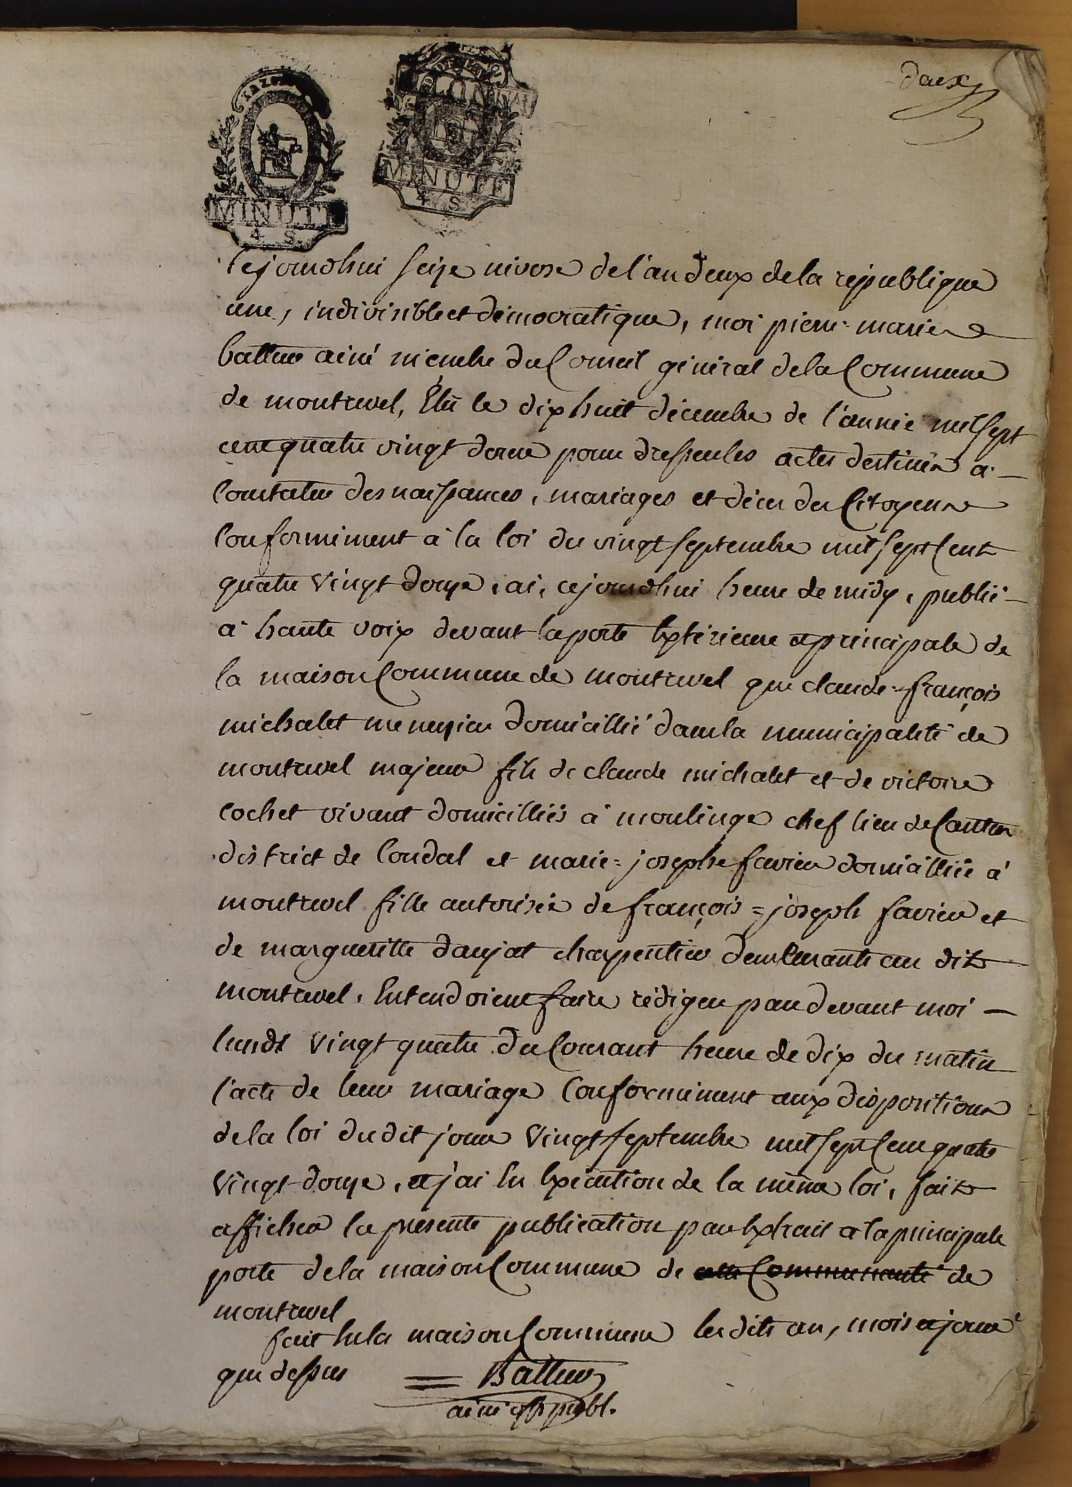 deux
MINUTE
4 S
MINUTE
4 S
Cejourdhui seize nivose de l'an deux de la république
une, indivisible et démocratique, moi pierre-marie
battur ainé membre du Conseil général de la Commune
de montrevel, Élu le dix huit décembre de l'année mil sept
cent quatre vingt douze pour dresser les actes destinés à
Constater des naissances, mariages et décès des Citoyens
Conformément à la loi du vingt septembre mil sept Cent
quatre vingt douze, ai, cejourdhui heure de midy, publié
à haute voix devant la porte Extérieure et principale de
la maison Commune de montrevel que claude-françois
michalet menuzier domicillié dans la municipalité de
montrevel majeur fils de claude michalet et de victoire
cochet vivant domicilliés à moulinge chef lieu de Canton
district de Condal et marie=josephe favier domicilliée à
montrevel fille autorisée de françois=joseph favier et
de margueritte daujat charpentier demeurants au dit
montrevel, Entendoient faire rédiger par devant moi
lundi vingt quatre du Courant heure de dix du matin
l'acte de leur mariage Conformément aux dispositions
de la loi dudit jour vingt septembre mil sept Cent quatre
vingt douze, et j'ai En Exécution de la même loi, fait
afficher la présente publication par Extrait à la principale
porte de la maison Commune de cette Communauté de
montrevel
fait En la maison Commune les dits an, mois et jour
que dessus = Battur
ainé off publ.